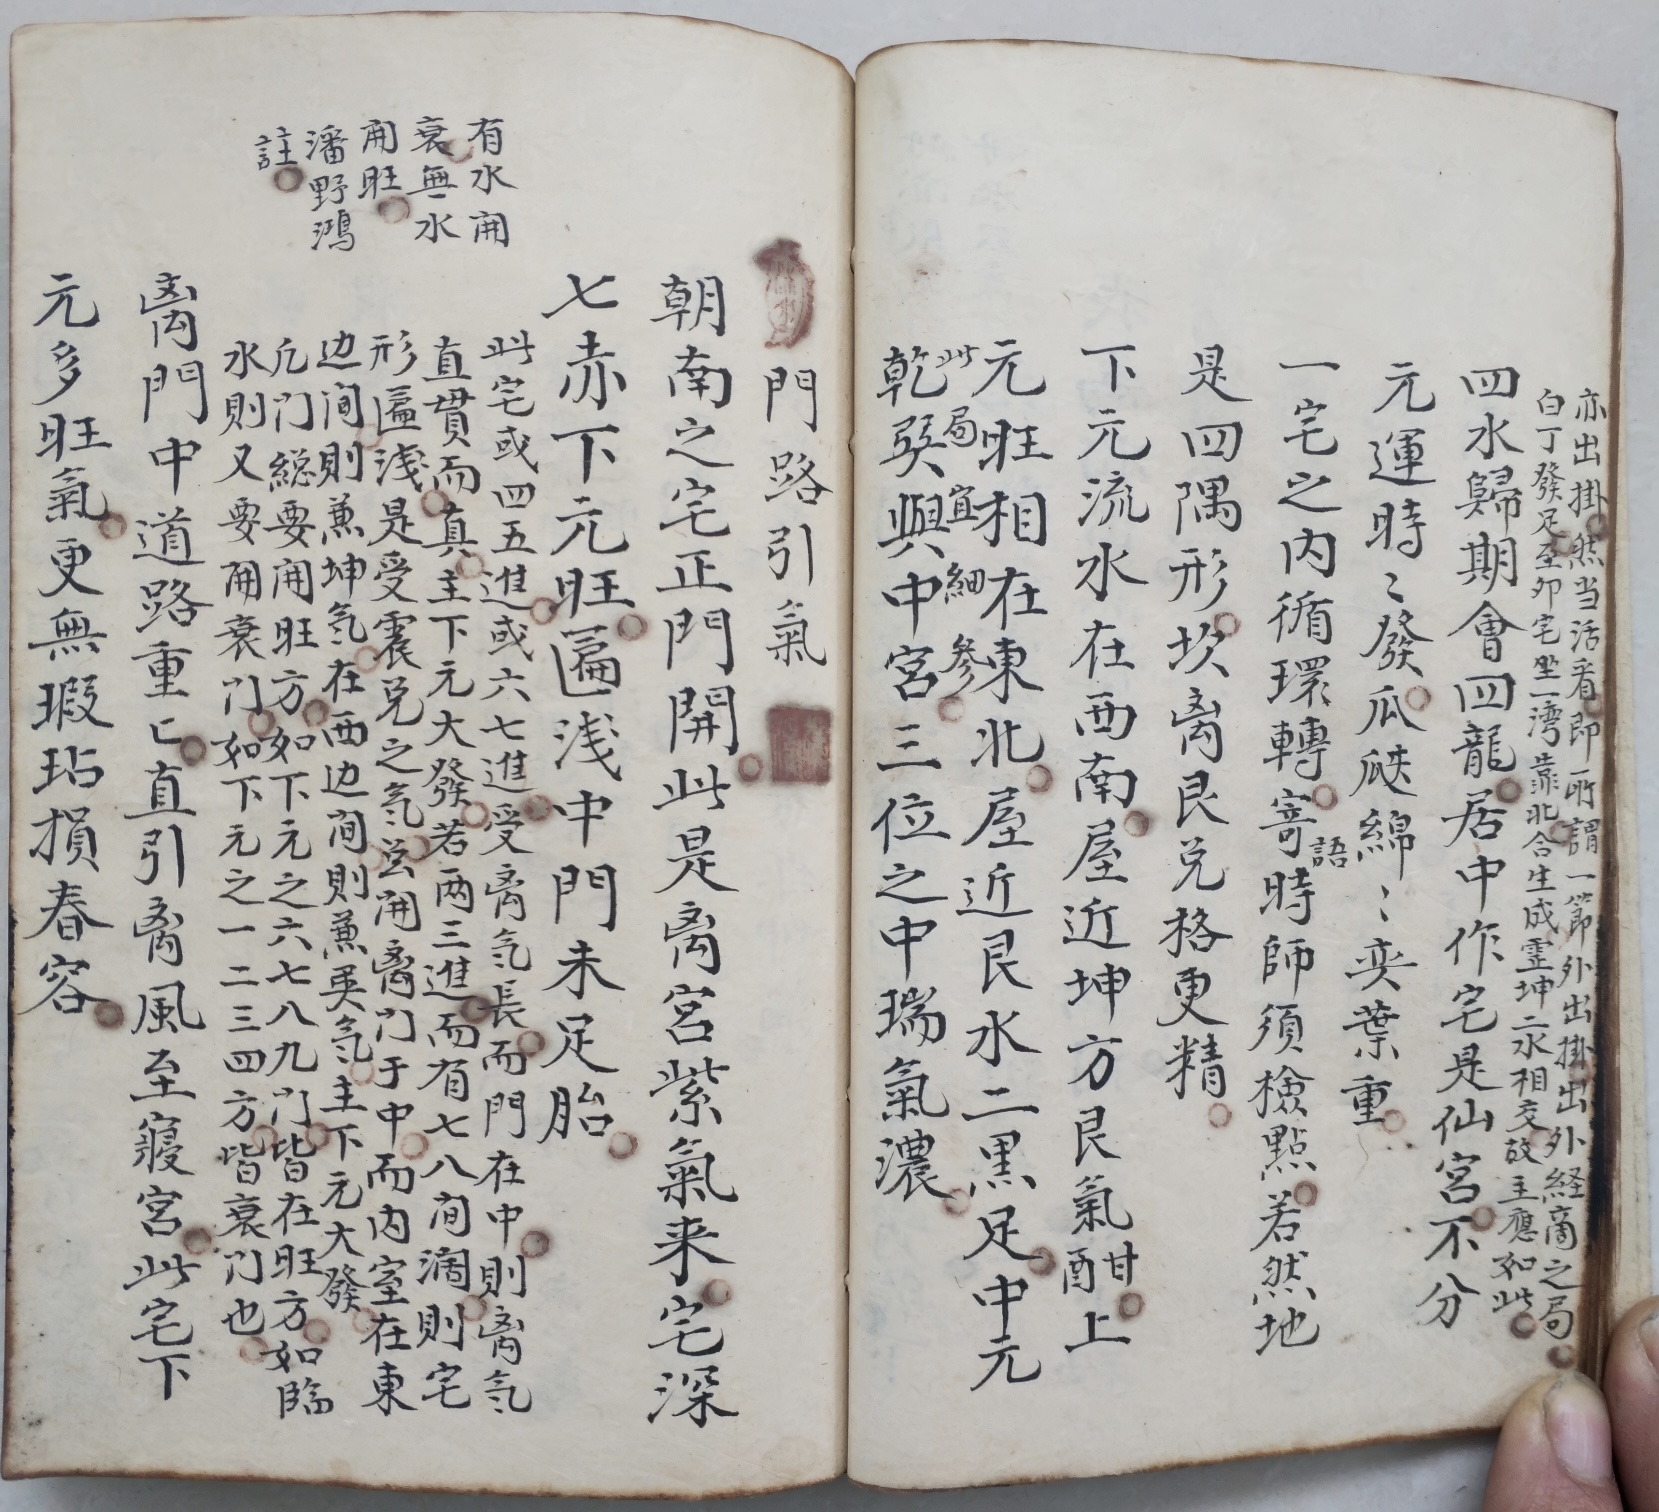 亦出掛然当活看即所謂一節外出掛出外経商之局
白丁發足至卯宅坐一湾靠北合生成霊坤二水相交故主應如此
四水歸期會四龍居中作宅是仙宮不分
元運時〻發瓜瓞綿〻奕葉重
一宅之内循環轉寄語時師須檢點若然地
是四隅形坎离艮兑格更精
下元流水在西南屋近坤方艮氣酣上
元旺相在東北屋近艮水二黒足中元
此局宜細參
乾巽與中宮三位之中瑞氣濃
門路引氣
朝南之宅正門開此是离宮紫氣来宅深
七赤下元旺匾浅中門未足胎
此宅或四五進或六七進受离气長而門在中則离气
直貫而真主下元大發若两三進而有七八间濶則宅
形匾浅是受震兑之气岂開离门于中而内室在東
边间則兼坤气在西边间則兼巽气主下元大發
凢门総要開旺方如下元之六七八九门皆在旺方如臨
水則又要開衰门如下元之一二三四方皆衰门也
有水開
衰無水
開旺
潘野鴻
註
离門中道路重亡直引离風至寢宮此宅下
元多旺氣更無瑕玷損春容